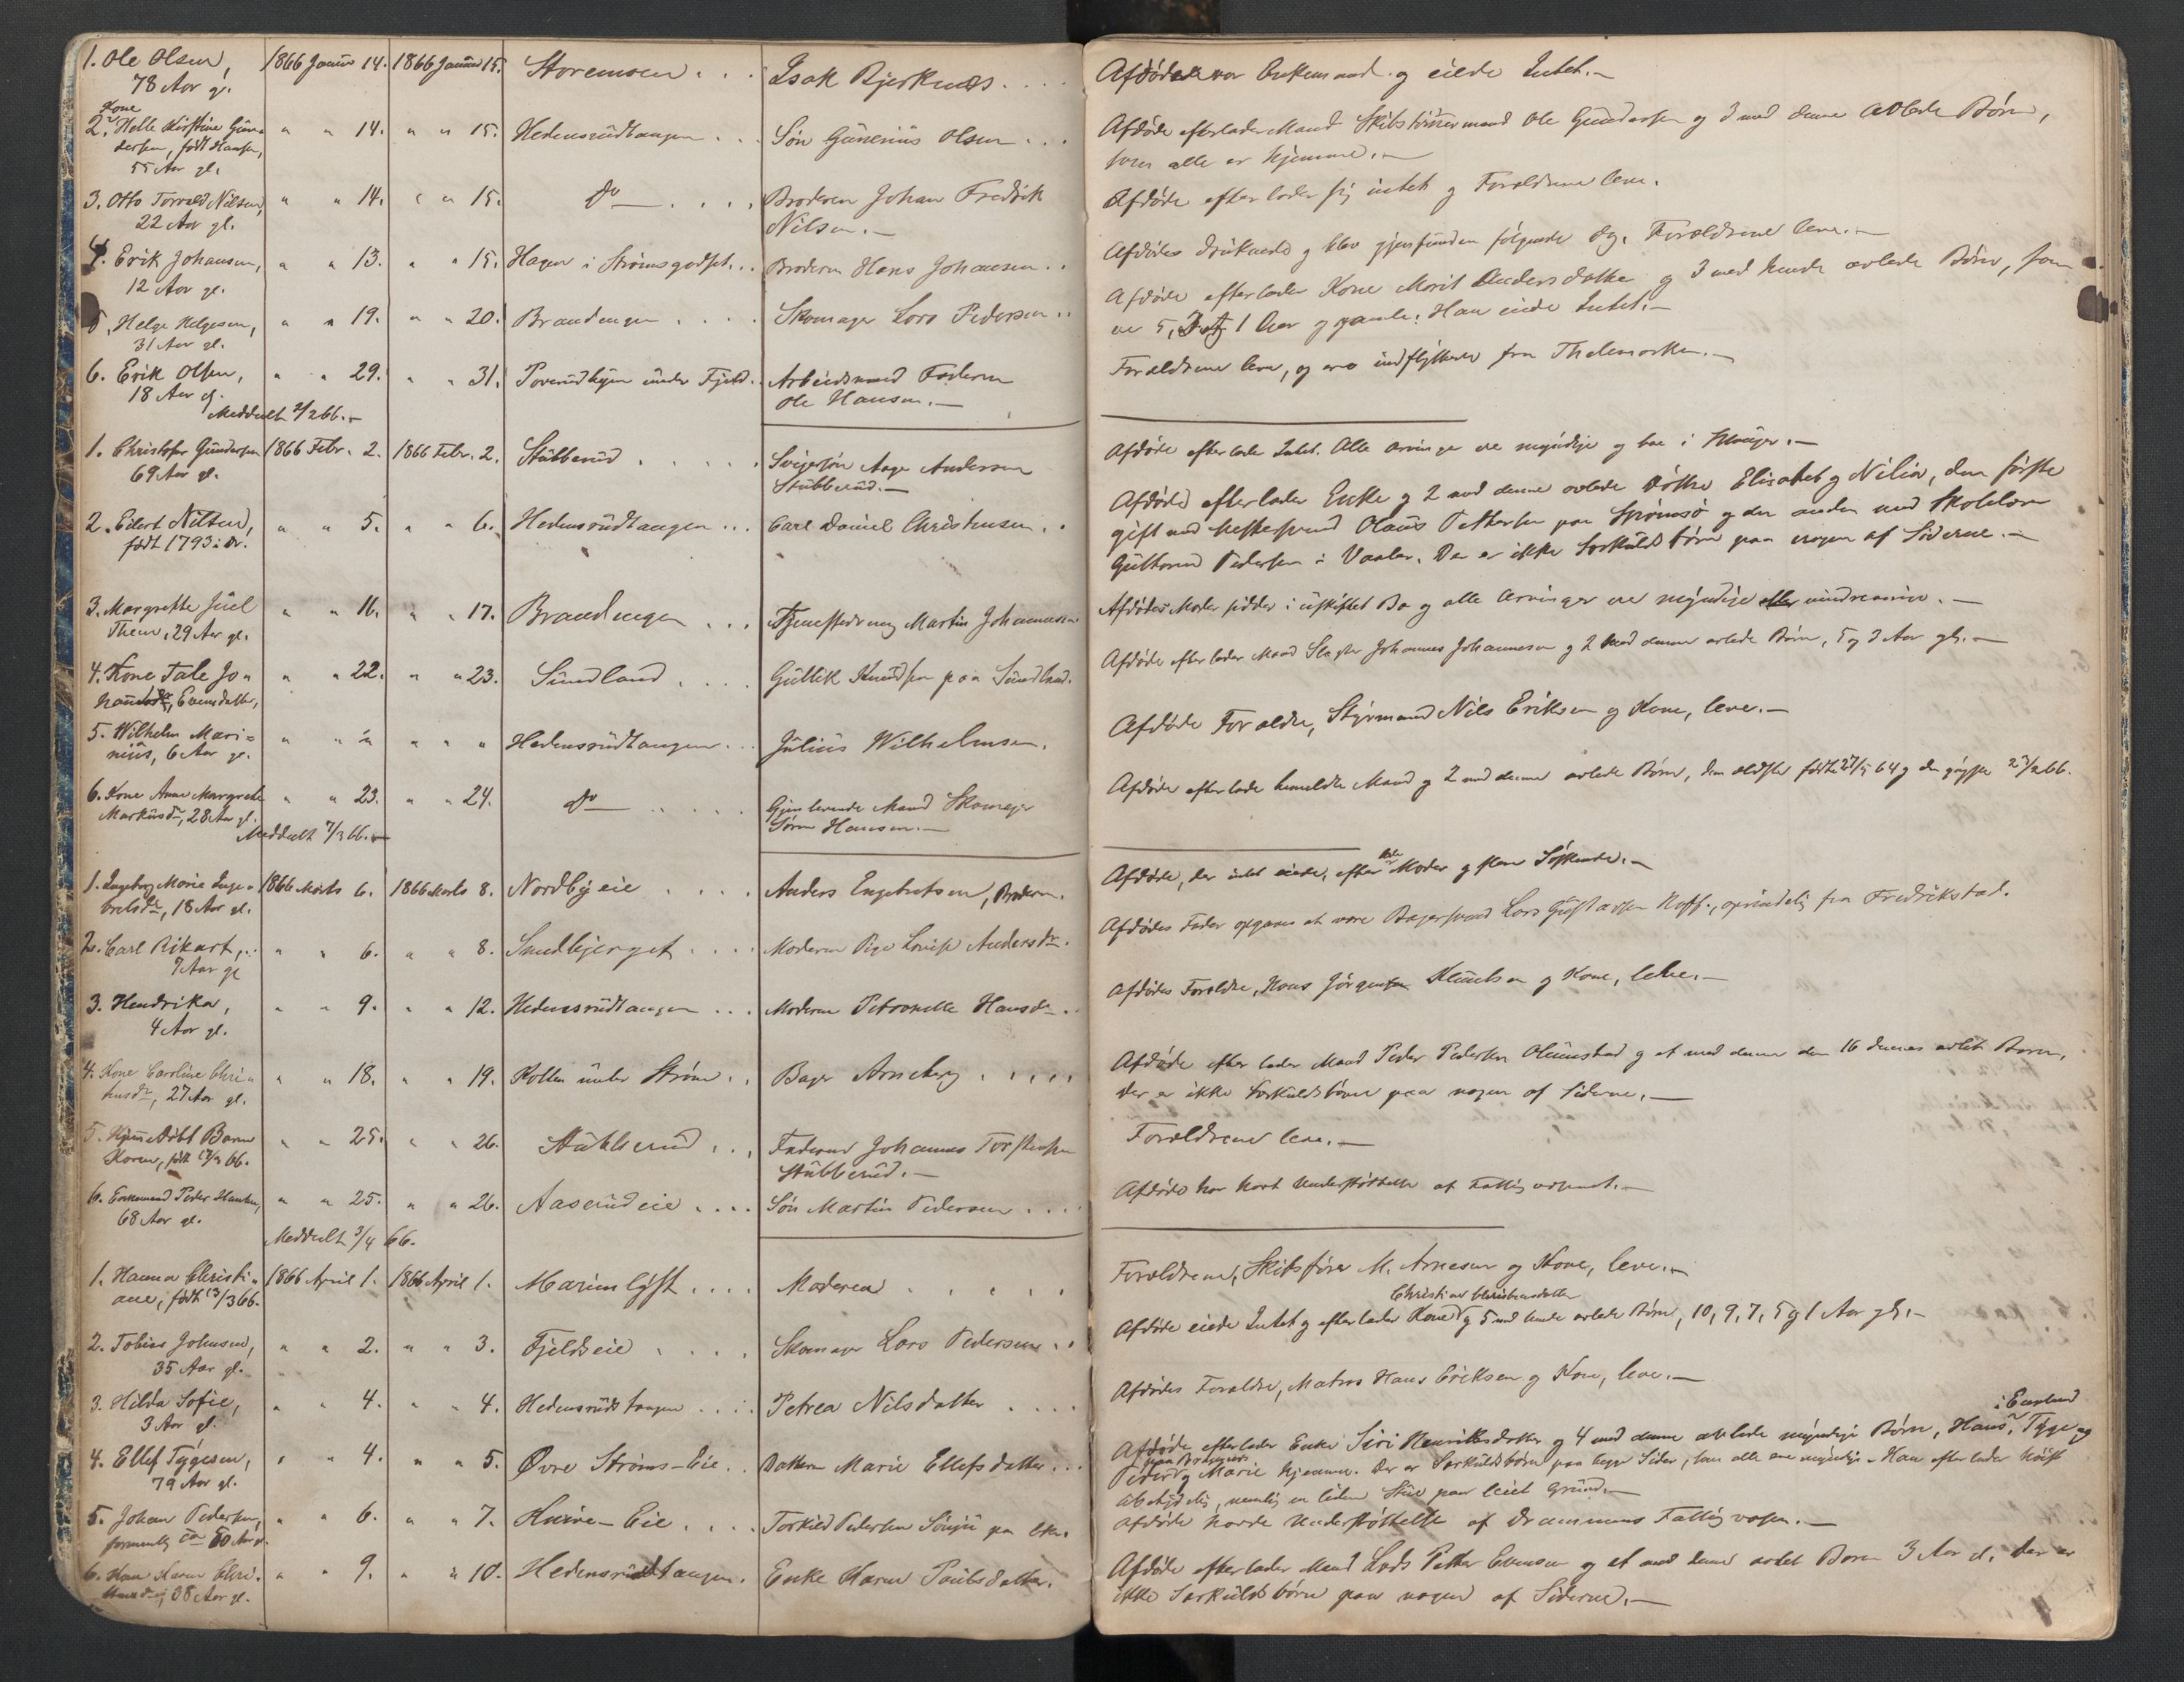 1. Ole Olsen, 1866 Januar 14. 1866 Januar 15. Storemoen . . . Isak Bjerknæs . . . .
78 Aar gl.
Afdøde var Enkemand og eiede Intet.—
2. Kone Helle Kirstine Gun-
dersen, født Hansen, " " 14. " " 15. Hedensrudtangen . . . Søn Gunerius Olsen . . .
55 Aar gl.
Afdøde efterlader Mand Skibstømmermand Ole Gundersen og 3 med denne avlede Børn,
som alle er hjemme.—
3. Otto Torvald Nilsen, " " 14. " " 15. Do — . . . . Broderen Johan Fredrik
22 Aar gl. Nilsen.—
Afdøde efterlader sig intet og Forældrene leve.
4. Erik Johansen, " " 13. " " 15. Hagen i Strømsgodset . . Broderen Hans Johansen . .
12 Aar gl.
Afdødes druknede og blev gjenfunden følgende Dag. Forældrene leve.—
5. Helge Helgesen, " " 19. " " 20. Brandengen . . . . Skomager Lars Pedersen . .
31 Aar gl.
Afdøde efterlader Kone Marit Andersdatter og 3 med hende avlede Børn, som
er 5, 1 Aar gamle. Han eiede Intet.—
6. Erik Olsen, " " 29. " " 31. under Fjeld . . Arbeidsmand Faderen
18 Aar gl. Ole Hansen.—
Forældrene leve, og ere indflyttede fra Thelemarken.—
Meddelt 2/2 66.—
1. Christofer Gundersen 1866 Febr. 2. 1866 Febr. 2. Stubberud . . . . . Svigersøn Aage Andersen
69 Aar gl. Stubberud.—
Afdøde efterlader Intet. Alle Arvinger ere myndige og boe i
2. Edert Nilsen, " " 5. " " 6. Hedensrudtangen . . . Carl Daniel Christensen . .
født 1793
Afdøde efterlader Enke og 2 med denne avlede Døttre Elisabet og Nilia, den første
gift med Olaus Pettersen paa Strømsø og den anden med Skolelærer
Guttorm Pedersen i Vaaler. Der er ikke Særkuldsbørn paa nogen af Siderne.—
3. Margrethe Juel " " 16. " " 17. Brandengen . . . Martin Johannesen
Them, 29 Aar gl.
Afdødes Moder sidder i uskiftet Bo og alle Arvinger ere myndige eller mindreaarige.—
4. Kone Tale Jo- " " 22. " " 23. Sundland . . . . Gullik Knudsen paa Sundland.
Evensdatter,
Afdøde efterlader Mand Slagter Johannes Johannesen og 2 med denne avlede Børn, 5 og 3 Aar gl.—
5. Wilhelm Mari- " " " " " " Hedensrudtangen . . Julius Wilhelmsen.
nius, 6 Aar gl.
Afdøde Forældre, Styrmand Nils Eriksen og Kone, leve.—
6. Kone Anne Margrete " " 23. " " 24. Do — . . . . Gjenlevende Mand Skomager
Markusdr, 28 Aar gl. Søren Hansen.—
Afdøde efterlader bemeldte Mand og 2 med denne avlede Børn, den ældste født 27/5 64 og den yngste 23/2 66.
Meddelt 7/3 66.—
1. Ingeborg Marie Inge- 1866 Marts 6. 1866 Marts 8. Nordbyeie . . . . Anders Engebretsen, Broderen.
bretsdr, 18 Aar gl.
Afdøde, der intet eiede, efterlader Moder og flere Søskende.—
2. Carl Rikart, " " 6. " " 8. Smedbjerget . . . . Moderen Pige Lovise Andersdr.
7 Aar gl
Afdødes Fader opgives at være Bagersvend Lars Gustavsen Hoff., oprindelig fra Fredrikstad.
3. Hendrika, " " 9. " " 12. Hedensrudtangen . . . Moderen Petronelle Hansdr . .
4 Aar gl.
Afdødes Forældre, Hans Jørgen Knudsen og Kone, leve.—
4. Kone Caroline Chri- " " 18. " " 19. Kollen under Strøm . . Bager Arneberg . . . . .
stensdr, 27 Aar gl.
Afdøde efterlader Mand Peder Pedersen Olumstad og et med denne den 16 dennes avlet Barn,
der er ikke Særkuldsbørn paa nogen af Siderne.—
5. Hjemmedøbt Barn " " 25. " " 26. Stubberud . . . Faderen Johannes Torstensen
Karen, født 66. Stubberud.—
Forældrene leve.—
6. Enkemand Peder Hansen, " " 25. " " 26. Aaserudeie . . . . Søn Martin Pedersen . . . .
68 Aar gl.
Afdøde har havt Understøttelse af Fattigvæsenet.—
Meddelt 3/4 66.
1. Hanna Christi- 1866 April 1. 1866 April 1. Marienlyst . . . . Moderen . . . . .
ane, født 13/3 66.
Forældrene, Skibsfører M. Arnesen og Kone, leve.—
2. Tobias Johnsen, " " 2. " " 3. Fjeldseie . . . . Skomager Lars Pedersen . .
35 Aar gl.
Christiane Christensdatter
Afdøde eiede Intet og efterlader Kone og 5 med hende avlede Børn, 10, 9, 7, 5 og 1 Aar gl.—
3. Hilda Sofie, " " 4. " " 4. Hedensrudstangen . . . Petrea Nilsdatter . . . .
3 Aar gl.
Afdødes Forældre, Matros Hans Eriksen og Kone, leve.—
4. Ellef Tygesen, " " 4. " " 5. Øvre Strøms-Eie . . Datteren Marie Ellefsdatter . . .
79 Aar gl.
i England
Afdøde efterlader Enke Siri Henriksdatter og 4 med denne avlede myndige Børn, Hans, Tyge og
Peder og Marie hjemme. Der er Særkuldsbørn paa begge Sider, som alle ere myndige. Han efterlader høist
ubetydelig, nemlig en liden Stue paa leiet Grund.—
5. Johan Pedersen, " " 6. " " 7. Huine-Eie . . . . Torkild Pedersen
formentlig ca 60 Aar gl.
Afdøde havde Understøttelse af Drammens Fattigvæsen.—
6. Kone Karen Chri- " " 9. " " 10. Hedensrudtangen. Enke Karen Paulsdatter.
stensdr, 38 Aar gl.
Afdøde efterlader Mand Lods Petter Evensen og et med denne avlet Barn 3 Aar gl. der er
ikke Særkuldsbørn paa nogen af Siderne.—